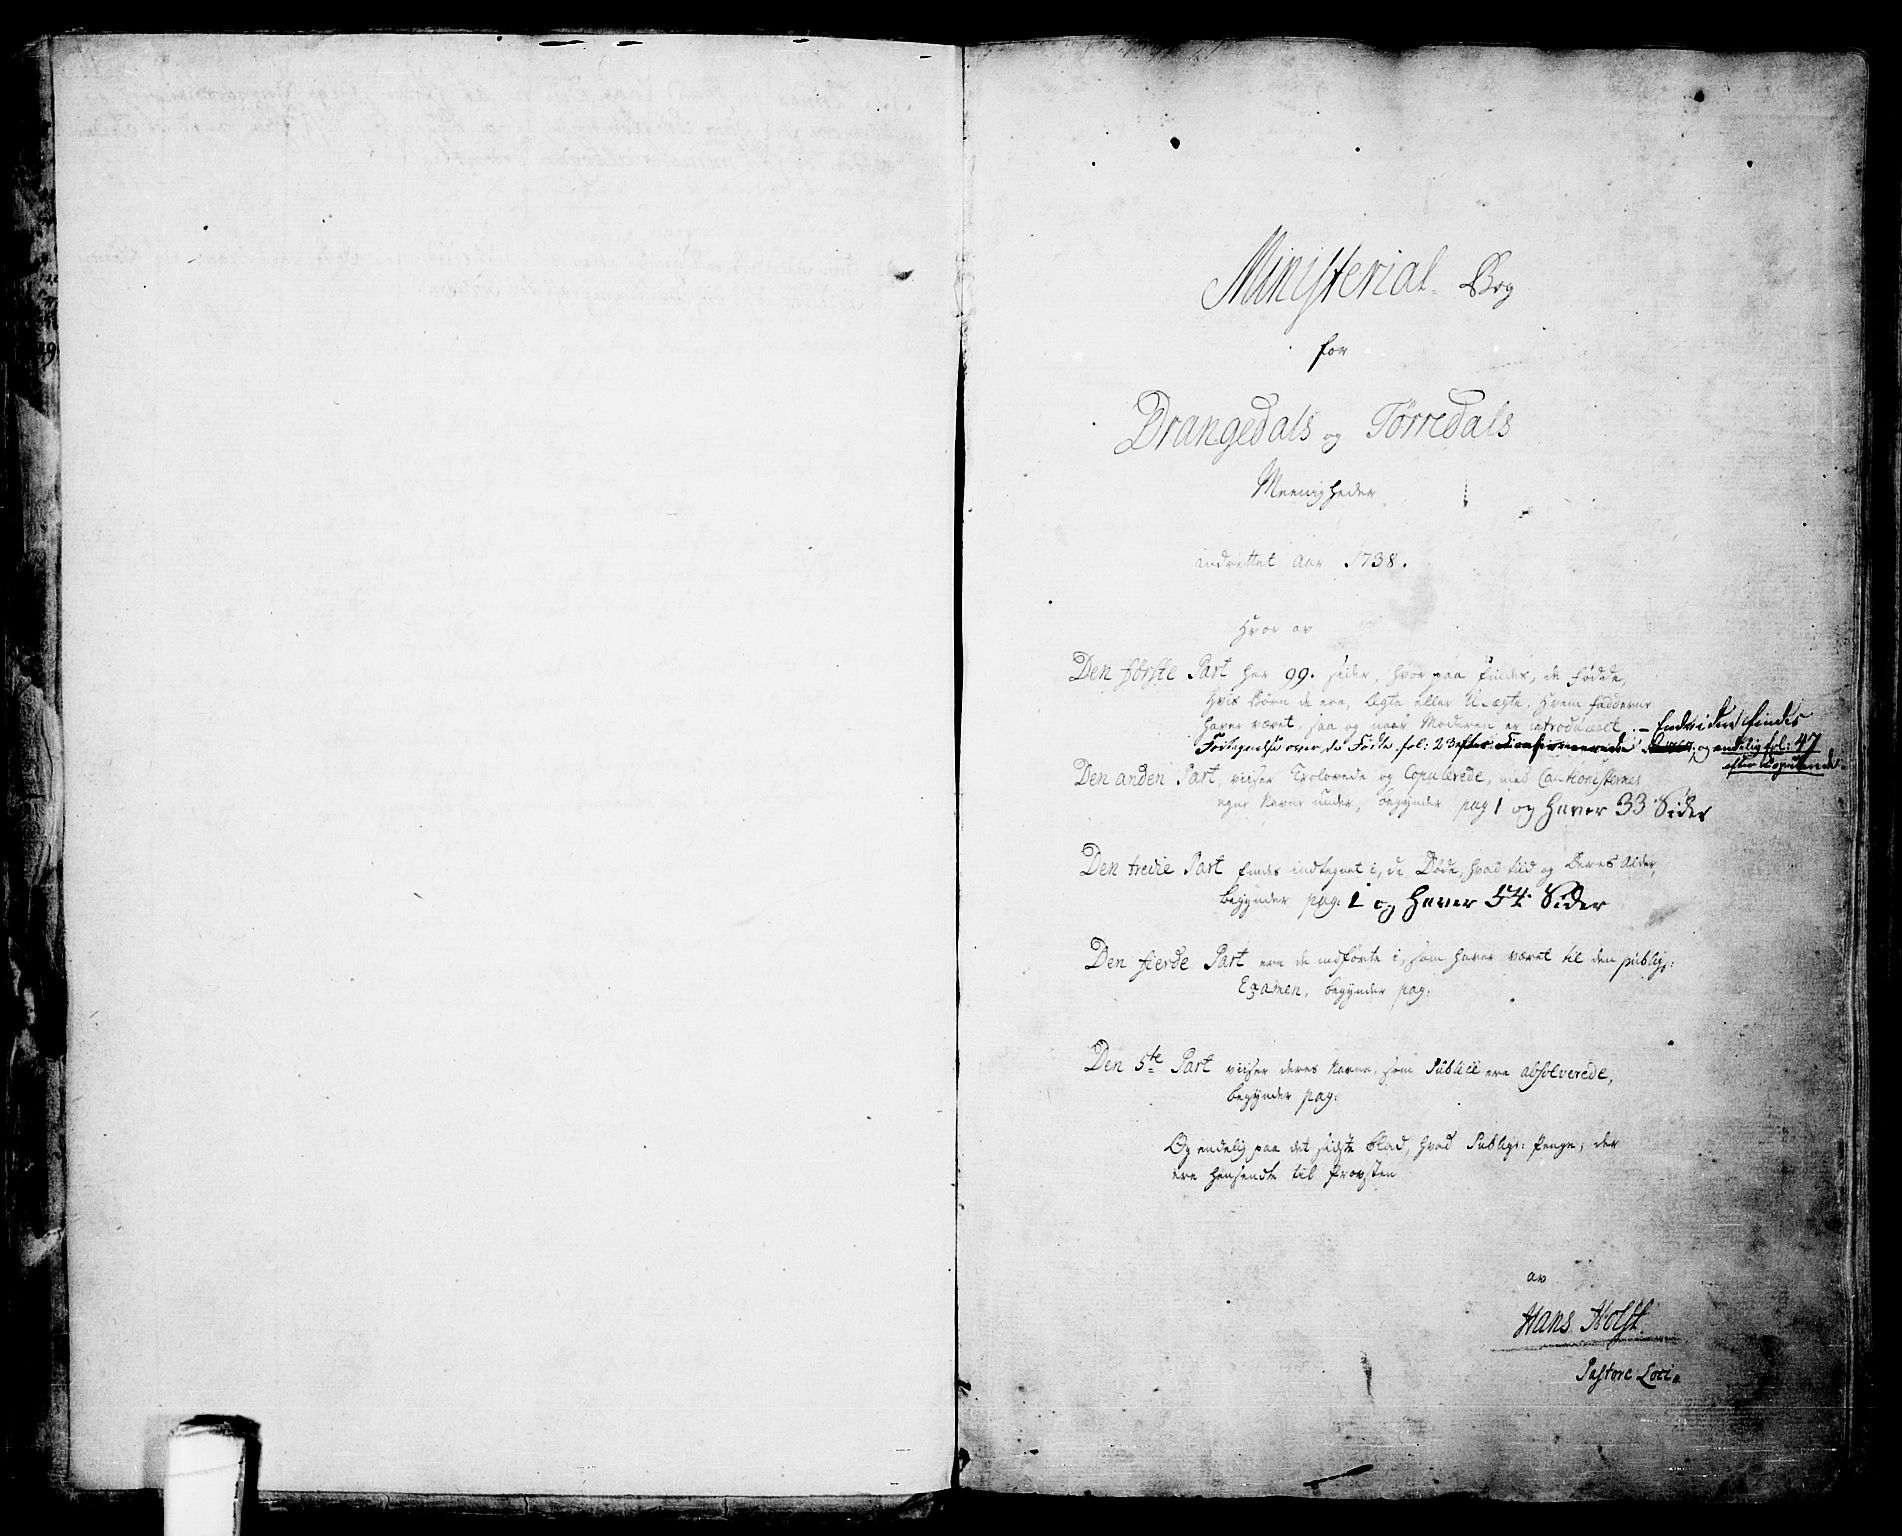 Ministerial-Bog
for
Drangedals og Tørredals
Meenigheder
indrettet Aar 1738.
Hvor av
Den første Part har 99. sider, hvor paa findes, de fødde,
hvis Børn de ere, Ægte eller U-ægte, hvem Fadderne
haver været, saa og naar Moderen er introduceret. – Endvidere findes
Fortegnelse over de Fødte, fol: 23 efter Confirmerede og endelig fol: 47
efter Copulerede.
Den anden Part, viiser Trolovede og Copulerede, med Cautionisternes
egne Navne under, begynder pag 1 og haver 33 Sider
Den tredie Part findes indtegnet i, de Døde, hvad tiid og deres Alder,
begynder pag: 1 og haver 54 Sider
Den fierde Part ere de indførte i, som haver været til den publiq:
Examen, begynder pag:
Den 5te Part viiser deres Navne, som Publicè ere absolverede,
begynder pag:
Og endelig paa det sidste Blad, hvad Publiqs: Penge, der
ere hensendte til Provsten
av
Hans Holst.
Pastore Loci.
49